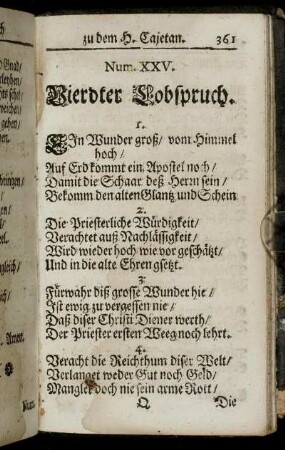 zu dem H. Cajetan. 361
Num. XXV.
Vierdter Lobspruch.
1.
EIn Wunder groß / vom Himmel
hoch /
Auf Erd kommt ein Apostel noch /
Damit die Schaar deß Herrn sein /
Bekomm den alten Glantz und Schein
2.
Die Priesterliche Würdigkeit /
Verachtet auß Nachlässigkeit /
Wird wieder hoch wie vor geschätzt /
Und in die alte Ehren gsetzt.
3
Fürwahr diß grosse Wunder hie /
Ist ewig zu vergessen nie /
Daß diser Christi Diener werth /
Der Priester ersten Weeg noch lehrt.
4.
Veracht die Reichthum diser Welt /
Verlanget weder Gut noch Geld /
Manglet doch nie sein arme Rott /
Q Die
gehen /
Num.